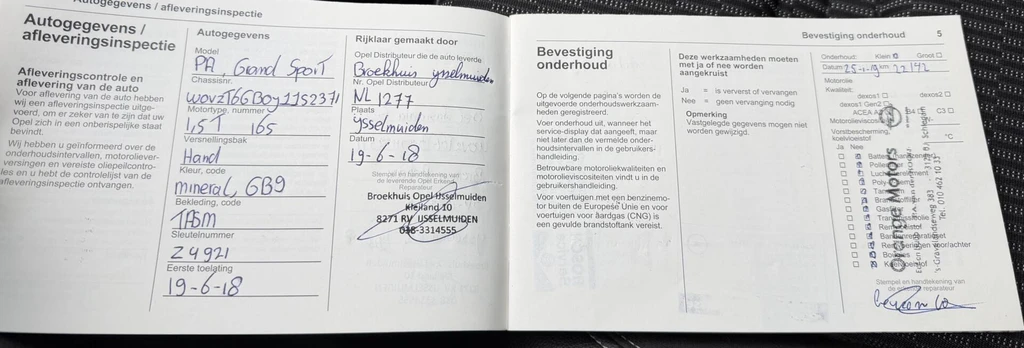 Autogegevens / afleveringsinspectie
Autogegevens /
afleveringsinspectie
Afleveringscontrole en
aflevering van de auto
Voor aflevering van de auto hebben
wij een afleveringsinspectie uitge-
voerd, om er zeker van te zijn dat uw
Opel zich in een onberispelijke staat
bevindt.
Wij hebben u geïnformeerd over de
onderhoudsintervallen, motoroliever-
versingen en vereiste oliepeilcontro-
les en u hebt de controlelijst van de
afleveringsinspectie ontvangen.
Autogegevens
Model
PA Grand Sport
Chassisnr.
Motortype, nummer
1,5T 165
Versnellingsbak
Hand
Kleur, code
mineral GB9
Bekleding, code
TASM
Sleutelnummer
Z4921
Eerste toelating
19-6-18
Rijklaar gemaakt door
Opel Distributeur die de auto leverde
Broekhuis ysselmuiden
Nr. Opel Distributeur
NL 1277
Plaats
ysselmuiden
Datum
19-6-18
Stempel en handtekening van
de leverende Opel Erkend
Reparateur
Broekhuis Opel IJsselmuiden
8271 RV IJSSELMUIDEN
038-3314555
Bevestiging onderhoud 5
Bevestiging
onderhoud
Op de volgende pagina's worden de
uitgevoerde onderhoudswerkzaam-
heden geregistreerd.
Voer onderhoud uit, wanneer het
service-display dat aangeeft, maar
niet later dan de vermelde onder-
houdsintervallen in de gebruikers-
handleiding.
Betrouwbare motoroliekwaliteiten en
motorolieviscositeiten vindt u in de
gebruikershandleiding.
Voor voertuigen met een benzinemo-
tor buiten de Europese Unie en voor
voertuigen voor aardgas (CNG) is
een gevulde brandstoftank vereist.
Deze werkzaamheden moeten
met ja of nee worden
aangekruist
Ja = is ververst of vervangen
Nee = geen vervanging nodig
Opmerking
Vastgelegde gegevens mogen niet
worden gewijzigd.
Onderhoud: Klein Groot
Datum 25-1-19 km 22142
Motorolie
Kwaliteit:
dexos1 dexos2
dexos1 Gen2
ACEA C3
Motorolieviscositeit
Vorstbescherming
koelvloeistof °C
Ja Nee
Koelvloeistof
Orange Motors
Tel. 010 462 10 33
Stempel en handtekening van
de reparateur